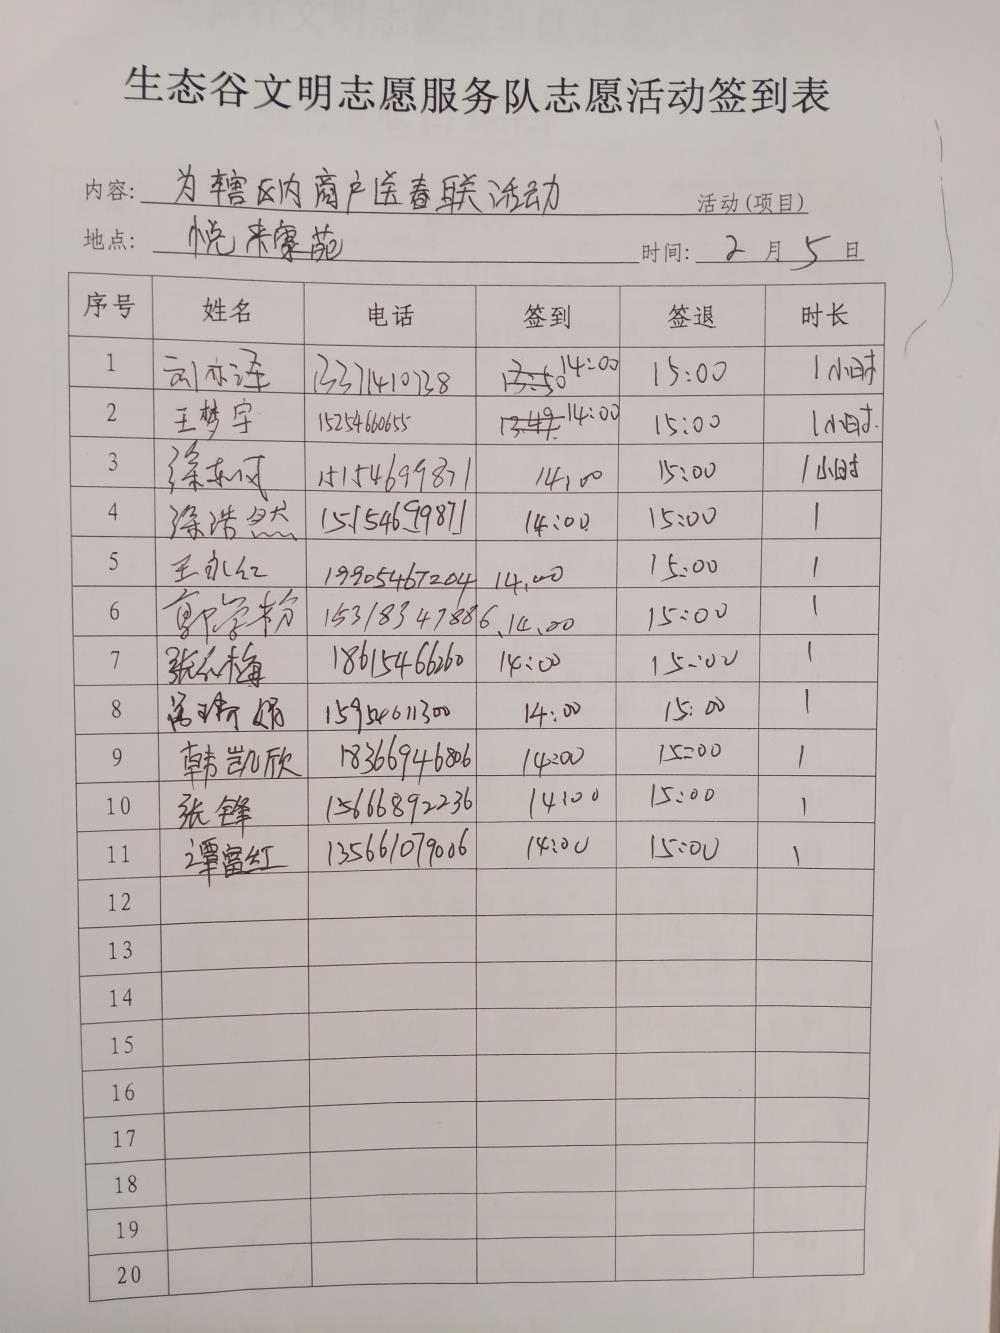 生态谷文明志愿服务队志愿活动签到表
内容: 为辖区内商户送春联活动 活动(项目)
地点: 悦来豪苑 时间: 2 月 5 日
序号 姓名 电话 签到 签退 时长
1 刘亦泽 13371410738 13:50 14:00 15:00 1小时
2 王梦宇 15254660655 13:49 14:00 15:00 1小时
3 徐 15154699871 14:00 15:00 1小时
4 徐浩然 15154699871 14:00 15:00 1
5 王永红 19905467204 14:00 15:00 1
6 郭学粉 15318347886 14:00 15:00 1
7 张 梅 18615466260 14:00 15:00 1
8 娟 15954611300 14:00 15:00 1
9 韩凯欣 18366946806 14:00 15:00 1
10 张锋 15666892236 14:00 15:00 1
11 谭富红 135661079006 14:00 15:00 1
12
13
14
15
16
17
18
19
20